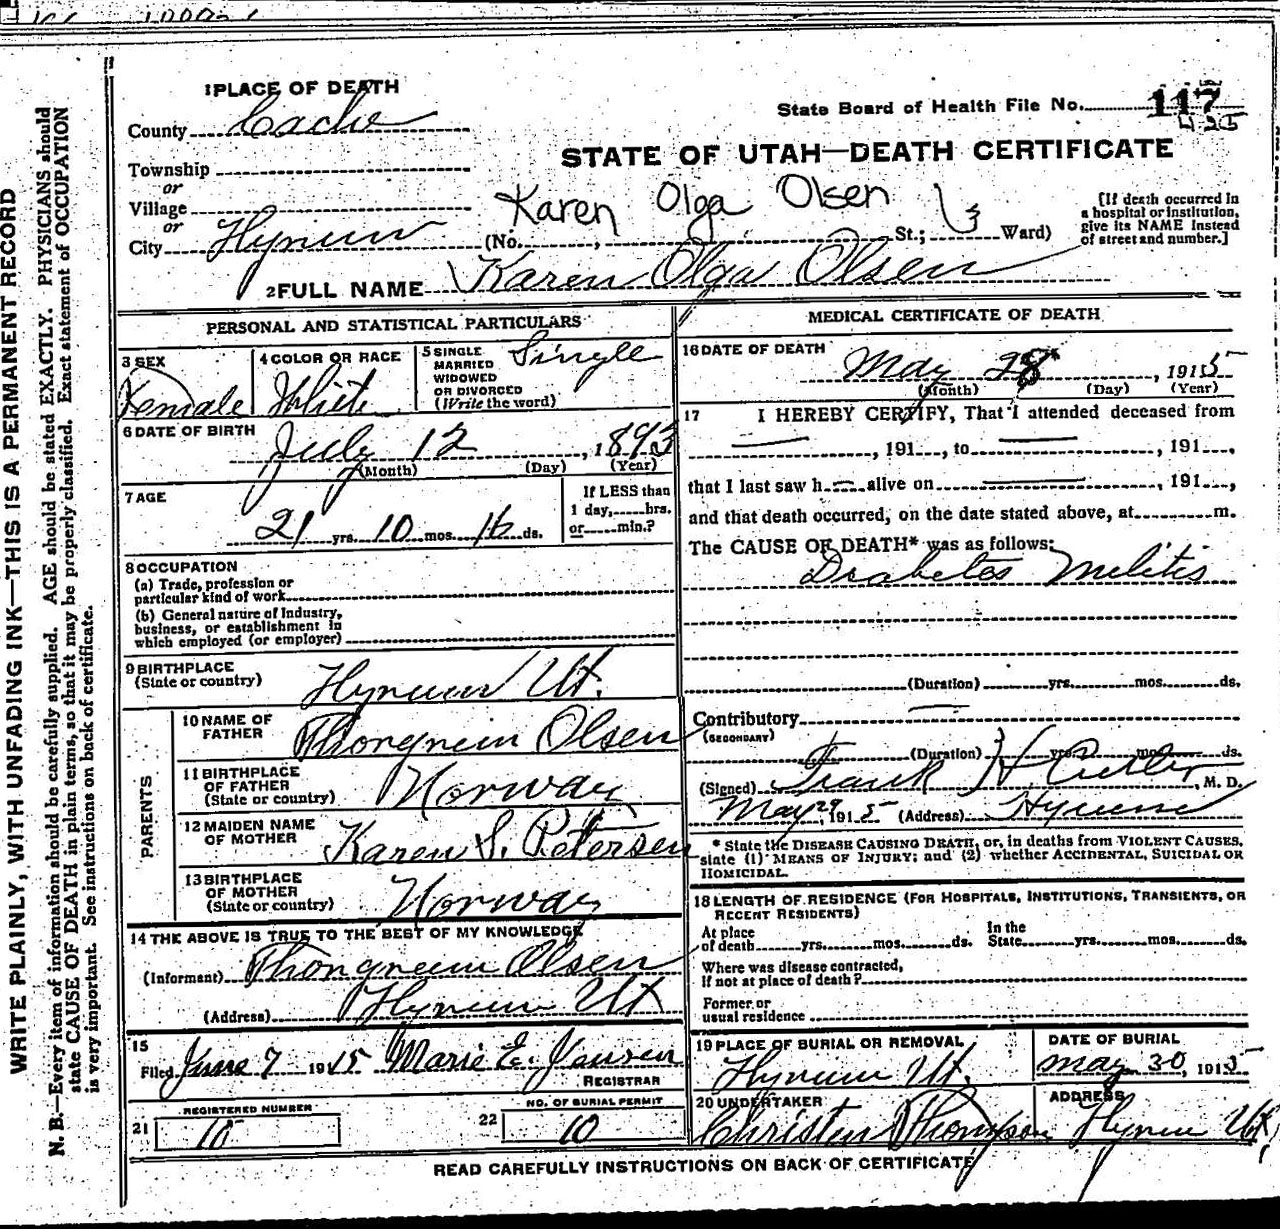 1 PLACE OF DEATH
County Cache
State Board of Health File No. 117
425
STATE OF UTAH—DEATH CERTIFICATE
Township
or
Village
or
City Hyrum
Karen Olga Olsen
(No. , St.; 3 Ward)
[If death occurred in
a hospital or institution,
give its NAME instead
of street and number.]
2 FULL NAME Karen Olga Olsen
PERSONAL AND STATISTICAL PARTICULARS
3 SEX
Female
4 COLOR OR RACE
White
5 SINGLE
MARRIED
WIDOWED
OR DIVORCED
(Write the word)
Single
6 DATE OF BIRTH
July 12, 1893
(Month) (Day) (Year)
7 AGE
21 yrs. 10 mos. 16 ds.
If LESS than
1 day, hrs.
or min.?
8 OCCUPATION
(a) Trade, profession or
particular kind of work
(b) General nature of Industry,
business, or establishment in
which employed (or employer)
9 BIRTHPLACE
(State or country)
Hyrum Ut.
PARENTS
10 NAME OF
FATHER
Olsen
11 BIRTHPLACE
OF FATHER
(State or country)
Norway
12 MAIDEN NAME
OF MOTHER
Karen S. Petersen
13 BIRTHPLACE
OF MOTHER
(State or country)
Norway
14 THE ABOVE IS TRUE TO THE BEST OF MY KNOWLEDGE
(Informant) Olsen
(Address) Hyrum Ut
15
Filed June 7 1915 Marie E. Jensen
REGISTRAR
21 REGISTERED NUMBER
22 NO. OF BURIAL PERMIT
10
MEDICAL CERTIFICATE OF DEATH
16 DATE OF DEATH
May 28, 1915
(Month) (Day) (Year)
17 I HEREBY CERTIFY, That I attended deceased from
, 191 , to , 191 ,
that I last saw h alive on , 191 ,
and that death occurred, on the date stated above, at m.
The CAUSE OF DEATH* was as follows:
Diabetes Militis
(Duration) yrs. mos. ds.
Contributory
(SECONDARY)
(Duration) yrs. mos. ds.
(Signed) Frank H Cutler, M. D.
May 29, 1915 (Address) Hyrum
* State the DISEASE CAUSING DEATH, or, in deaths from VIOLENT CAUSES,
state (1) MEANS OF INJURY; and (2) whether ACCIDENTAL, SUICIDAL OR
HOMICIDAL.
18 LENGTH OF RESIDENCE (FOR HOSPITALS, INSTITUTIONS, TRANSIENTS, OR
RECENT RESIDENTS)
At place
of death yrs. mos. ds.
In the
State yrs. mos. ds.
Where was disease contracted,
if not at place of death?
Former or
usual residence
19 PLACE OF BURIAL OR REMOVAL
Hyrum Ut.
DATE OF BURIAL
May 30, 1915
20 UNDERTAKER
Christen Thompson
ADDRESS
Hyrum Ut
READ CAREFULLY INSTRUCTIONS ON BACK OF CERTIFICATE
WRITE PLAINLY, WITH UNFADING INK—THIS IS A PERMANENT RECORD
N. B.—Every item of information should be carefully supplied. AGE should be stated EXACTLY. PHYSICIANS should
state CAUSE OF DEATH in plain terms, so that it may be properly classified. Exact statement of OCCUPATION
is very important. See instructions on back of certificate.